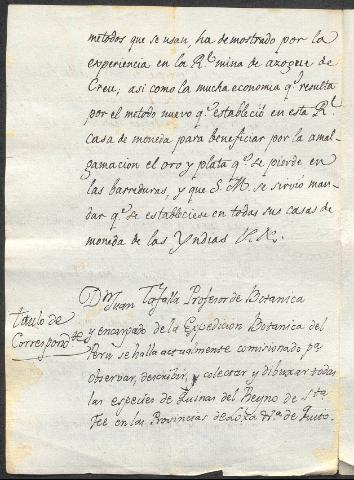 metodos que se usan, ha demostrado por la
experiencia en la Rl. mina de azogue de
Creu; asi como la mucha economia q.e resulta
por el metodo nuevo q.e estableció en esta Rl.
casa de moneda para beneficiar por la amal-
gamacion el oro y plata q.e se pierde en
las barreduras, y que S. M. se sirvió man-
dar q.e se estableciese en todas sus casas de
moneda de las Yndias
Dn. Juan Tafalla Profesor de Botanica
titulo de
Correspond.te
y encargado de la Expedicion Botanica del
Peru se halla actualmente comisionado pa.
observar, describir, y colectar y dibuxar todas
las especies de Quinas del Reyno de Sta.
Fee en las Provincias de Loxa de Quito.